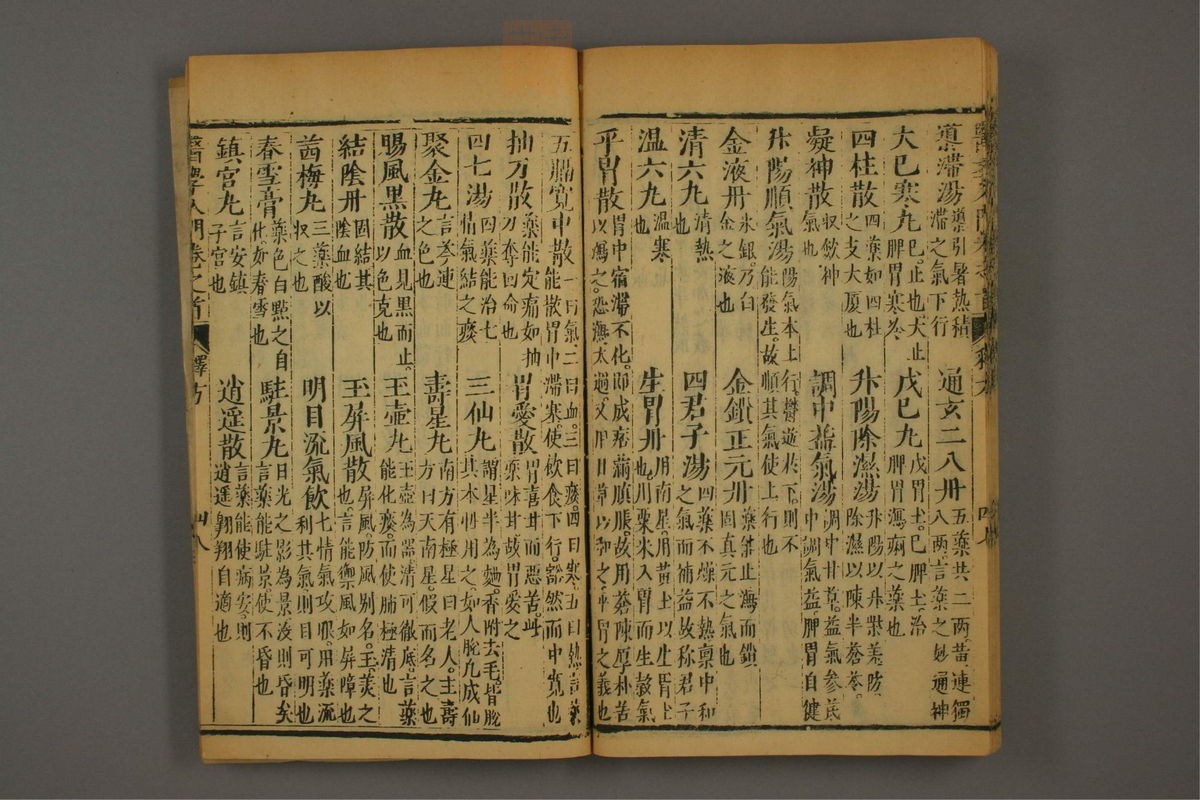 導滯湯 導引暑熱積滯之氣下行 通玄二八丹 五藥共二兩。黃連獨八兩。言藥之妙通神
大已寒丸 已。止也。大止脾胃寒冷 戊己丸 戊胃土。己脾土。治脾胃瀉痢之藥也
四柱散 四藥如四柱之支大厦也 升陽除濕湯 升陽以升柴羌防。除濕以陳半蒼苓。
凝神散 収斂神氣也 調中益氣湯 調中甘草。益氣參芪中調氣益。脾胃自健
升陽順氣湯 陽氣本上行。鬱遊於下。則不能發生。故順其氣使上行也
金液丹 水銀乃白金之液也 金鎖正元丹 藥能止瀉而鎖固真元之氣也
清六丸 清熱也 四君子湯 四藥不燥不熱。稟中和之氣而補益。故称君子
温六丸 温寒也 生胃丹 用南星。用黃土以生胃土也。用粟米入胃而生穀氣
平胃散 胃中宿滯不化。即成痞滿䐜脹。故用蒼陳厚朴苦以瀉之。恐瀉太過。又用甘草以和之。平胃之義也
五膈寬中散 一曰氣。二曰血。三曰痰。四曰寒。五曰熱。言藥能散胃中滯寒。使飲食下行。豁然而中寬也
抽刀散 藥能定痛如抽刀奪回命也 胃愛散 胃喜甘而惡苦。此藥味甘。故胃愛之
四七湯 四藥能治七情氣結之痰 三仙丸 謂星半為麯。香附去毛。皆脫其本性。用之如人脫凡成仙
聚金丸 言芩連之色也 壽星丸 南方有極星曰老人。主壽方曰天南星。假而名之也
腸風黑散 血見黑而止。以色克也 玉壺丸 玉壺為器。清可徹底。言藥能化痰。而使肺極清也
結陰丹 固結其陰血也 玉屏風散 屏風。防風別名。玉。美之也。言能禦風如屏障也
茜梅丸 三藥酸以収之也 明目流氣飲 七情氣攻眼。用藥流利其氣。則目可明也
春雪膏 藥色白。點之自化。如春雪也 駐景丸 日光之影為景。沒則昏矣。言藥能駐景。使不昏也
鎮宮丸 言安鎮子宮也 逍遙散 言藥能使病安。則逍遙翱翔自適也
醫學入門卷之首 釋方 四八